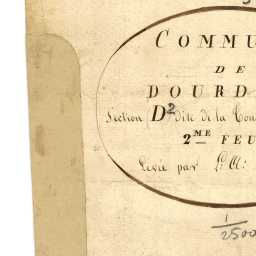 COMMU
DE
DOURD
Section D2 dite de la Con
2.ME FEU
Levée par
1/2500